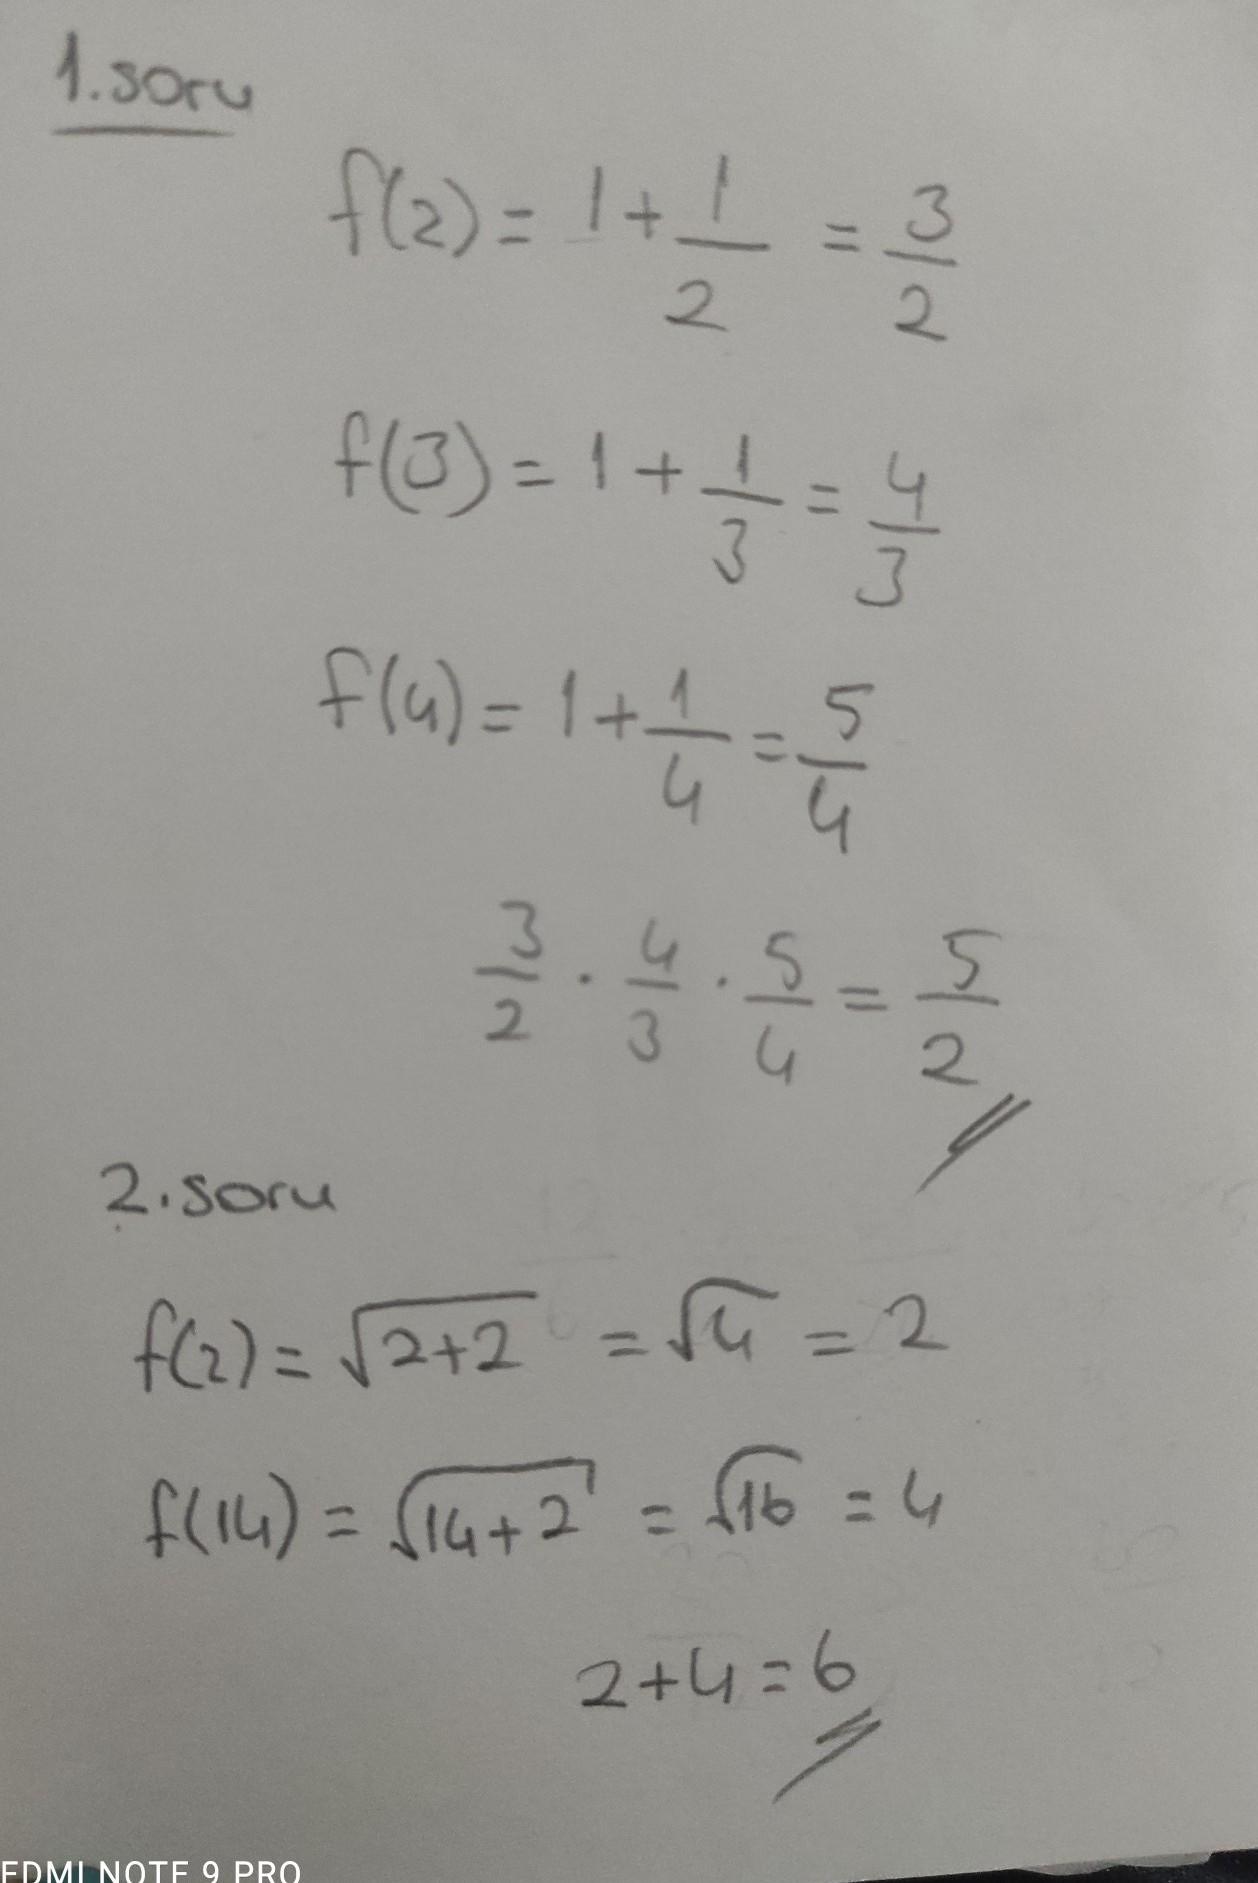 1.soru
f(2) = 1 + 1/2 = 3/2
f(3) = 1 + 1/3 = 4/3
f(4) = 1 + 1/4 = 5/4
3/2 . 4/3 . 5/4 = 5/2
2.soru
f(2) = √2+2 = √4 = 2
f(14) = √14+2 = √16 = 4
2+4=6
EDMI NOTE 9 PRO